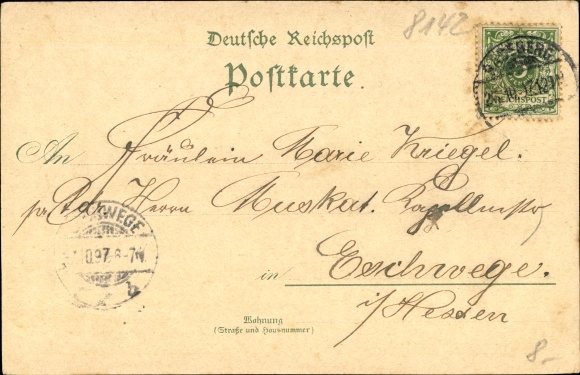 8142
Deutsche Reichspost
Postkarte.
REICHSPOST
An Fräulein Marie Kriegel.
Herrn Muskut. Kapellmstr
ESCHWEGE
10.97. 6-7N
in Eschwege.
i/Hessen
Wohnung
(Straße und Hausnummer)
8.-